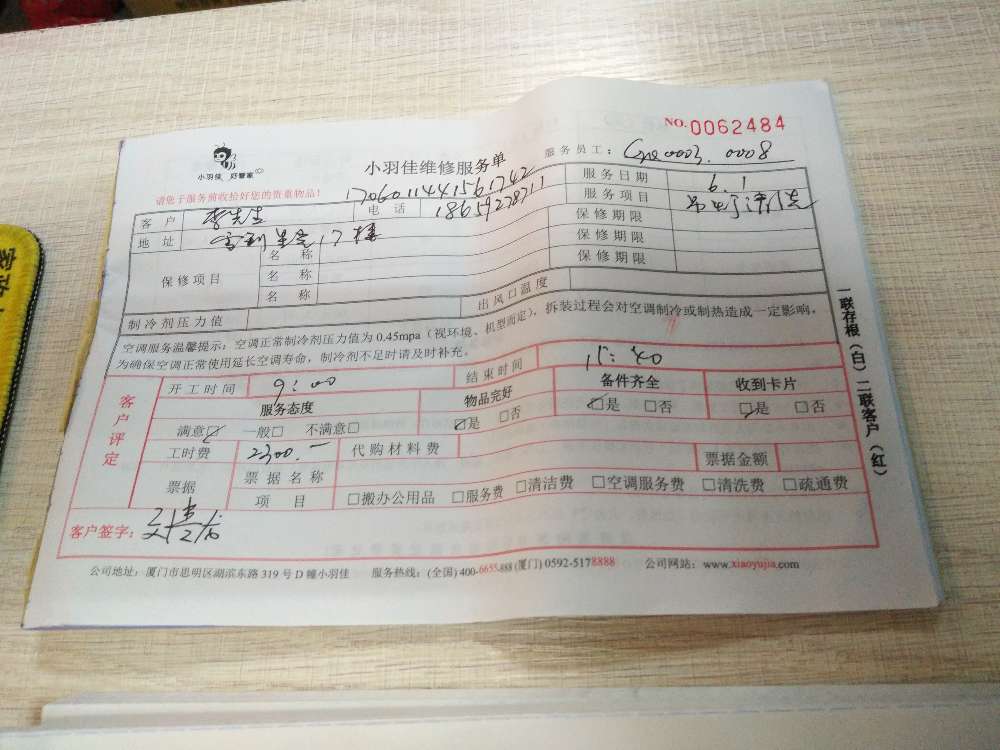 NO.0062484
小羽佳 好管家
小羽佳维修服务单
服务员工: 0003. 0008
请您于服务前收拾好您的贵重物品!
1706011441561742
服务日期 6.1
客户 李先生 电话 18659278711 服务项目
地址 17楼 保修期限
保修项目 名称 保修期限
名称 保修期限
名称
制冷剂压力值 出风口温度
空调服务温馨提示:空调正常制冷剂压力值为0.45mpa(视环境、机型而定),拆装过程会对空调制冷或制热造成一定影响,
为确保空调正常使用延长空调寿命,制冷剂不足时请及时补充。
客户评定
开工时间 9:00 结束时间 15:40
服务态度 物品完好 备件齐全 收到卡片
满意☑ 一般□ 不满意□ ☑是 □否 ☑是 □否 ☑是 □否
工时费 2300.- 代购材料费 票据金额
票据 票据名称
项目 □搬办公用品 □服务费 □清洁费 □空调服务费 □清洗费 □疏通费
客户签字:
公司地址:厦门市思明区湖滨东路319号D幢小羽佳 服务热线:(全国)400-6655-888(厦门)0592-5178888 公司网站:www.xiaoyujia.com
一联存根(白)二联客户(红)